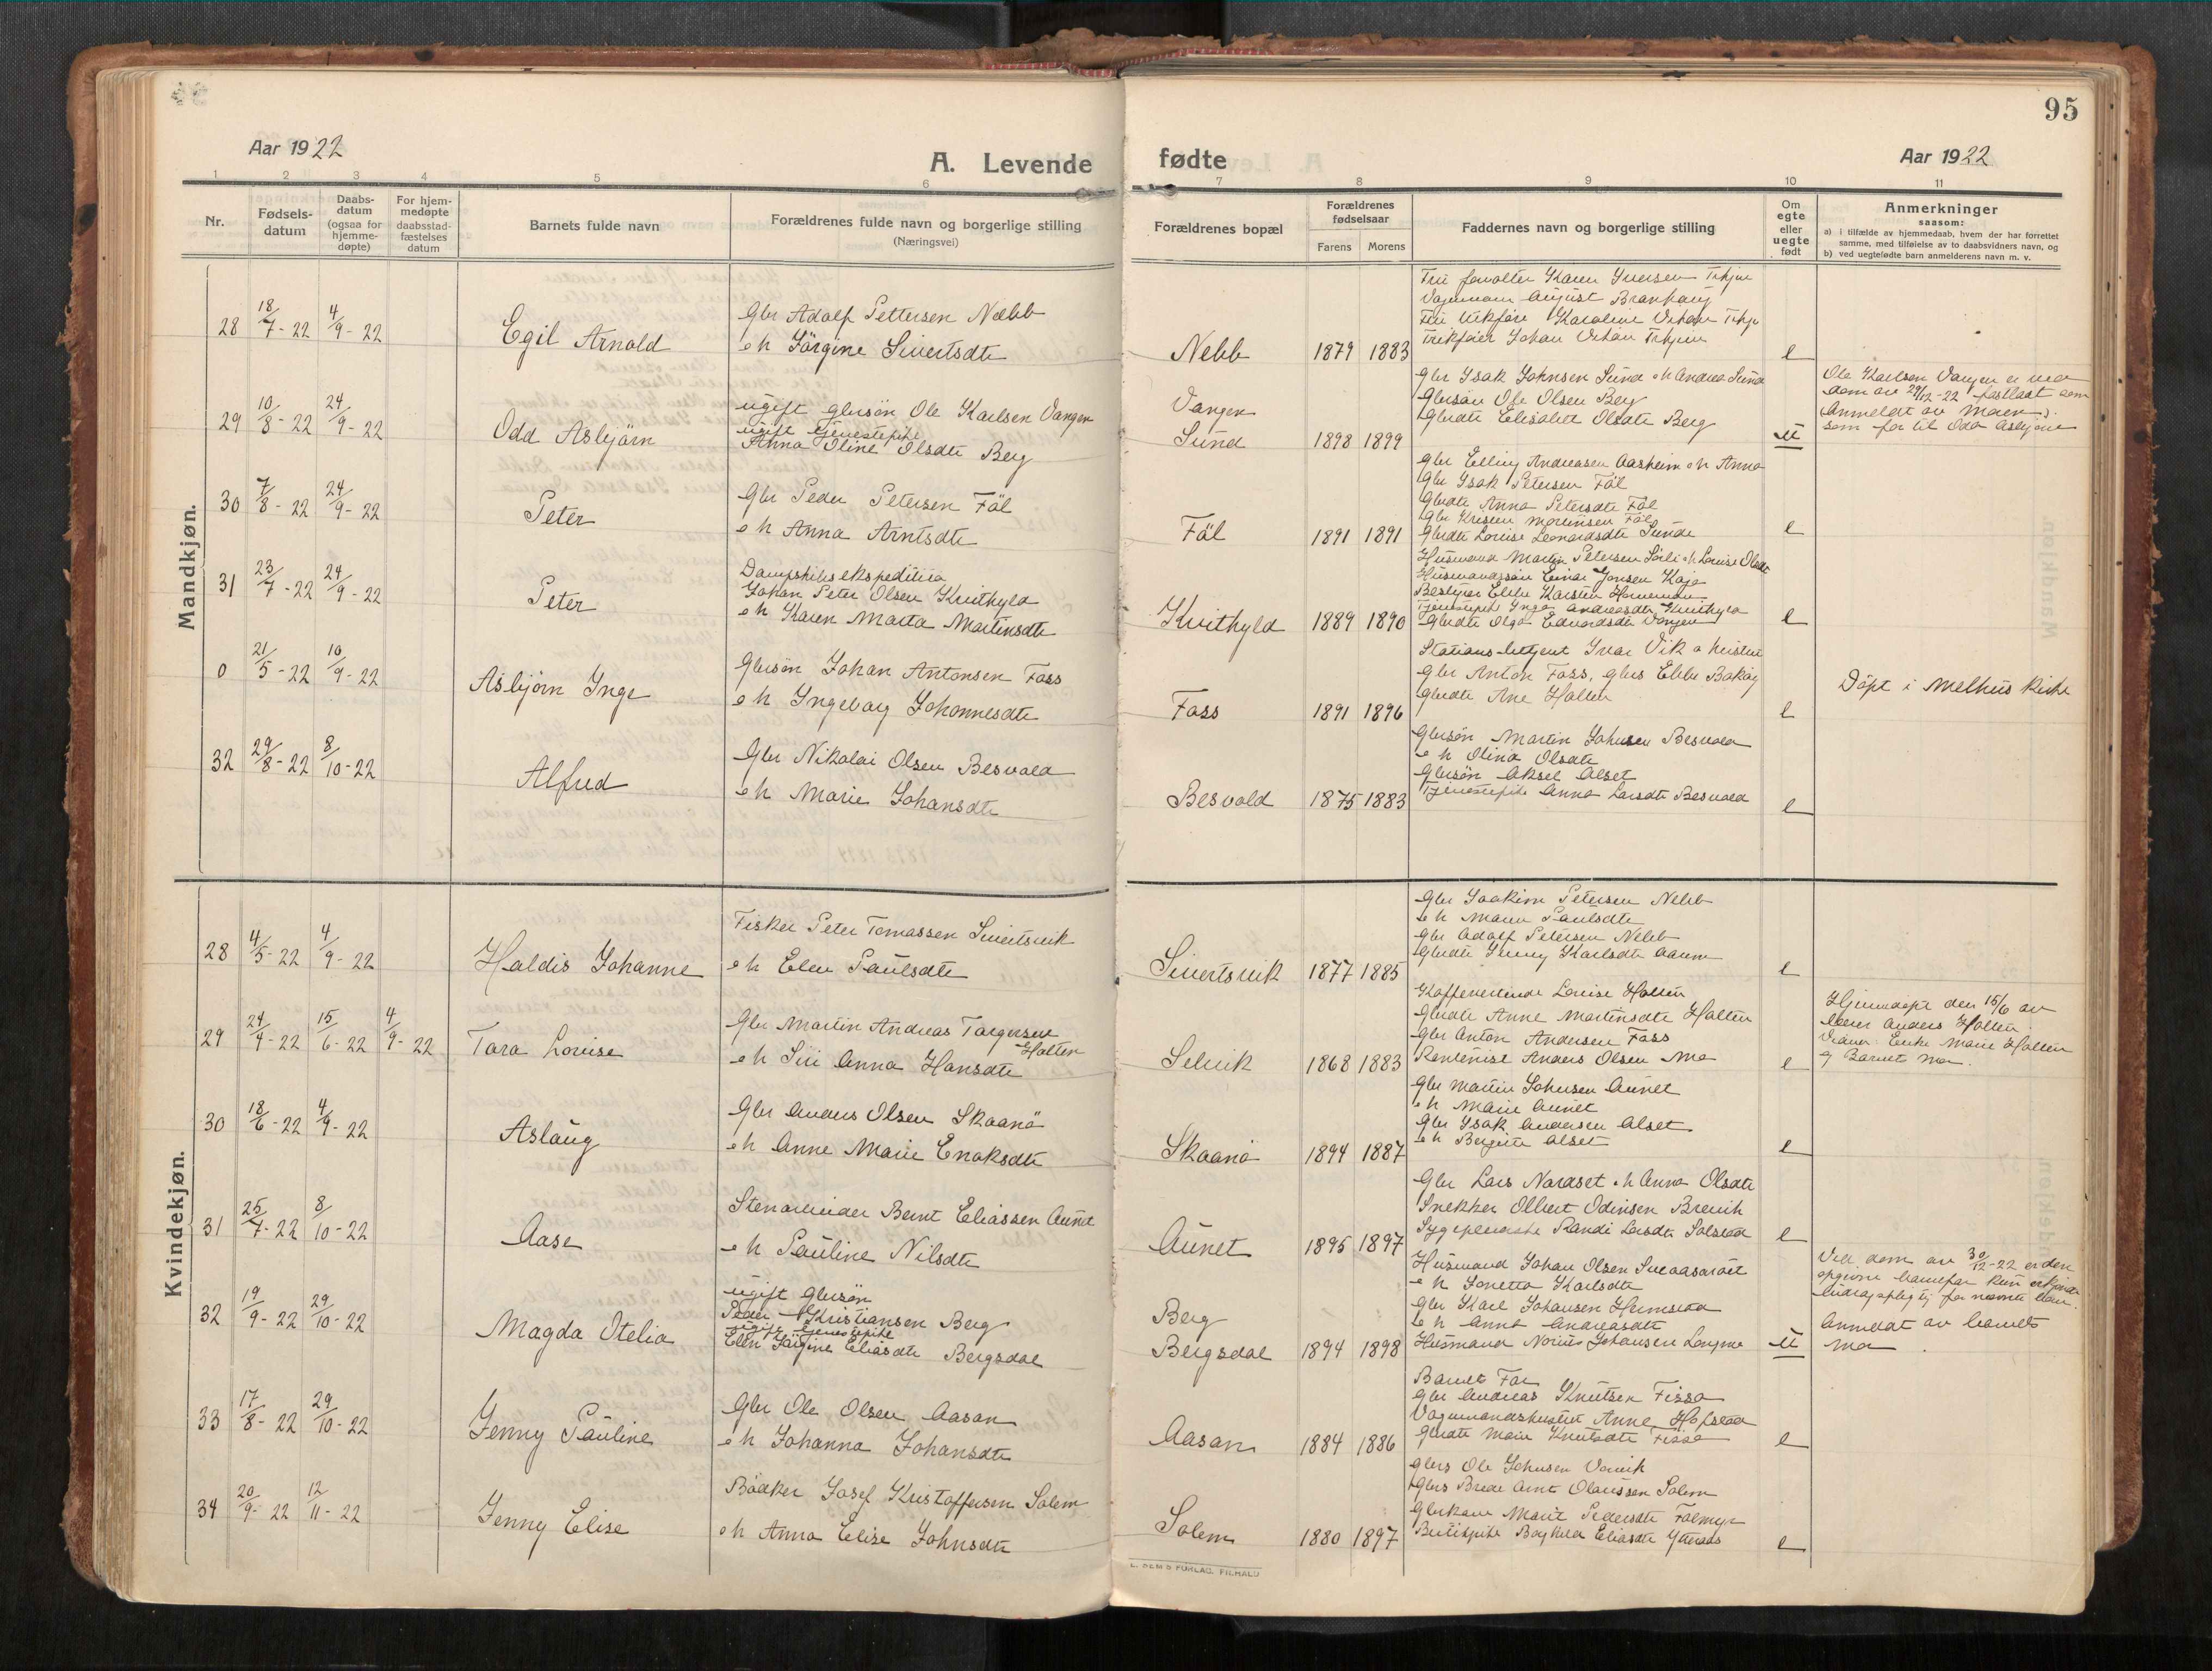 95
Aar 1922
A. Levende fødte
Aar 1922
1 2 3 4 5 6 7 8 9 10 11
Nr.
Fødsels-
datum
Daabs-
datum
(ogsaa for
hjemme-
døpte)
For hjem-
medøpte
daabsstad-
fæstelses
datum
Barnets fulde navn
Forældrenes fulde navn og borgerlige stilling
(Næringsvei)
Forældrenes bopæl
Forældrenes
fødselsaar
Farens Morens
Faddernes navn og borgerlige stilling
Om
egte
eller
uegte
født
Anmerkninger
saasom:
a) i tilfælde av hjemmedaab, hvem der har forrettet
samme, med tilføielse av to daabsvidners navn, og
b) ved uegtefødte barn anmelderens navn m. v.
Mandkjøn.
28 18/7-22 4/9-22
Egil Arnold
Gbr Adolf Pettersen Nebb
o h Jörgine Sivertsdtr
Nebb 1879 1883
Vognmann August Brankaug
e
29 10/8-22 24/9-22
Odd Asbjörn
ugift gbrsön Ole Karlsen Vangen
ugift tjenestepike
Anna Oline Olsdtr Berg
Vangen
Sund 1898 1899
Gbr Isak Johnsen Sund o h Andrea Sund
Gbrsön Ole Olsen Berg
Gbrdtr Elisabet Olsdtr Berg
u
Ole Karlsen Vangen er ved
dom av 29/12-22 fastlaat som
Anmeldt av Moren
som far til Odd Asbjörn
30 7/8-22 24/9-22
Peter
Gbr Peder Petersen Föl
o h Anna Arntsdtr
Föl 1891 1891
Gbr Elling Andreasen Aasheim o h Anna
Gbr Isak Petersen Föl
Gbrdtr Anna Petersdtr Föl
Gbr Kristen Mortensen Föl
Gbrdtr Louise Leonardsdtr Sunde
e
31 23/7-22 24/9-22
Peter
Dampskibsekspeditör
Johan Peter Olsen Kvithyld
o h Karen Marta Martinsdtr
Kvithyld 1889 1890
Husmand Martin Petersen Sörli o h Louise Olsdtr
Husmandssön Einar Jonsen Kaja
Gbrdtr Olga Edvardsdtr Vangen
e
0 21/5-22 10/9-22
Asbjörn Inge
Gbrsön Johan Antonsen Foss
o h Ingeborg Johannesdtr
Foss 1891 1896
Stations betjent Ivar Vik o hustru
Gbr Anton Foss, gbrs Ebbe Baköy
Gbrdtr Ane Holten
e
Döpt i Melhus kirke
32 29/8-22 8/10-22
Alfred
Gbr Nikolai Olsen Besvold
o h Marie Johansdtr
Besvold 1875 1883
Gbrsön Martin Johnsen Besvold
o h Olina Olsdtr
Gbrsön Aksel Alset
Tjenestepike Anna Larsdtr Besvold
e
Kvindekjøn.
28 4/5-22 4/9-22
Haldis Johanne
Fisker Peter Tomassen Sivertsvik
o h Elen Paulsdtr
Sivertsvik 1877 1885
Gbr Joakim Petersen Nebb
o h Maren Paulsdtr
Gbr Adolf Petersen Nebb
Gbrdtr Jenny Karlsdtr Aaum
e
29 24/4-22 15/6-22 4/9-22
Tora Louise
Gbr Martin Andreas Torgersen
Holten
o h Siri Anna Hansdtr
Selvik 1868 1883
Kaffevertinde Louise Holten
Gbrdtr Anne Martinsdtr Holten
Gbr Anton Andersen Foss
Rentenist Anders Olsen Mo
e
Hjemmedöpt den 15/6 av
lærer Anders Holten
Vidner: Enke Marie Holten
og Barnets Mor.
30 18/6-22 4/9-22
Aslaug
Gbr Anders Olsen Skaanö
o h Anne Marie Enoksdtr
Skaanö 1894 1887
Gbr Martin Johnsen Aunet
o h Marie Aunet
Gbr Isak Andersen Alset
o h Bergitte Alset
e
31 25/7-22 8/10-22
Aase
Stenarbeider Bernt Eliassen Aunet
o h Pauline Nilsdtr
Aunet 1895 1897
Gbr Lars Nordset o h Anna Olsdtr
Snekker Olbert Odinsen Brevik
Sygepleierske Randi Larsdtr Solstad
e
32 19/9-22 29/10-22
Magda Otelia
ugift Gbrsön
Peder Kristiansen Berg
ugift tjenestepike
Elen Jörgine Eliasdtr Bergsdal
Berg
Bergsdal 1894 1898
Husmand Johan Olsen
o h Jonetta Karlsdtr
Gbr Karl Johansen Hemstad
o h Anna Andreasdtr
Husmand Johansen
u
Ved dom av 30/12-22 er den
opgivne barnefar kun erkjendt
bidragspligtig for nævnte barn.
Anmeldt av barnets
mor
33 17/8-22 29/10-22
Jenny Pauline
Gbr Ole Olsen Aasan
o h Johanna Johansdtr
Aasan 1884 1886
Barnets Far
Gbr Andreas Knutsen Fissa
Vognmandshustru Anne Hofstad
Gbrdtr Marie Knutsdtr Fissa
e
34 20/9-22 12/11-22
Jenny Elise
Bödker Josef Kristoffersen Solem
o h Anna Elise Johnsdtr
Solem 1880 1897
Gbrs Ole Johnsen Vorvik
Gbrs Brede Arnt Olaussen Solem
Gbrkone Marit Pedersdtr Folmyr
Butikpike Borghild Eliasdtr
e
E. SEM'S FORLAG, FR.HALD